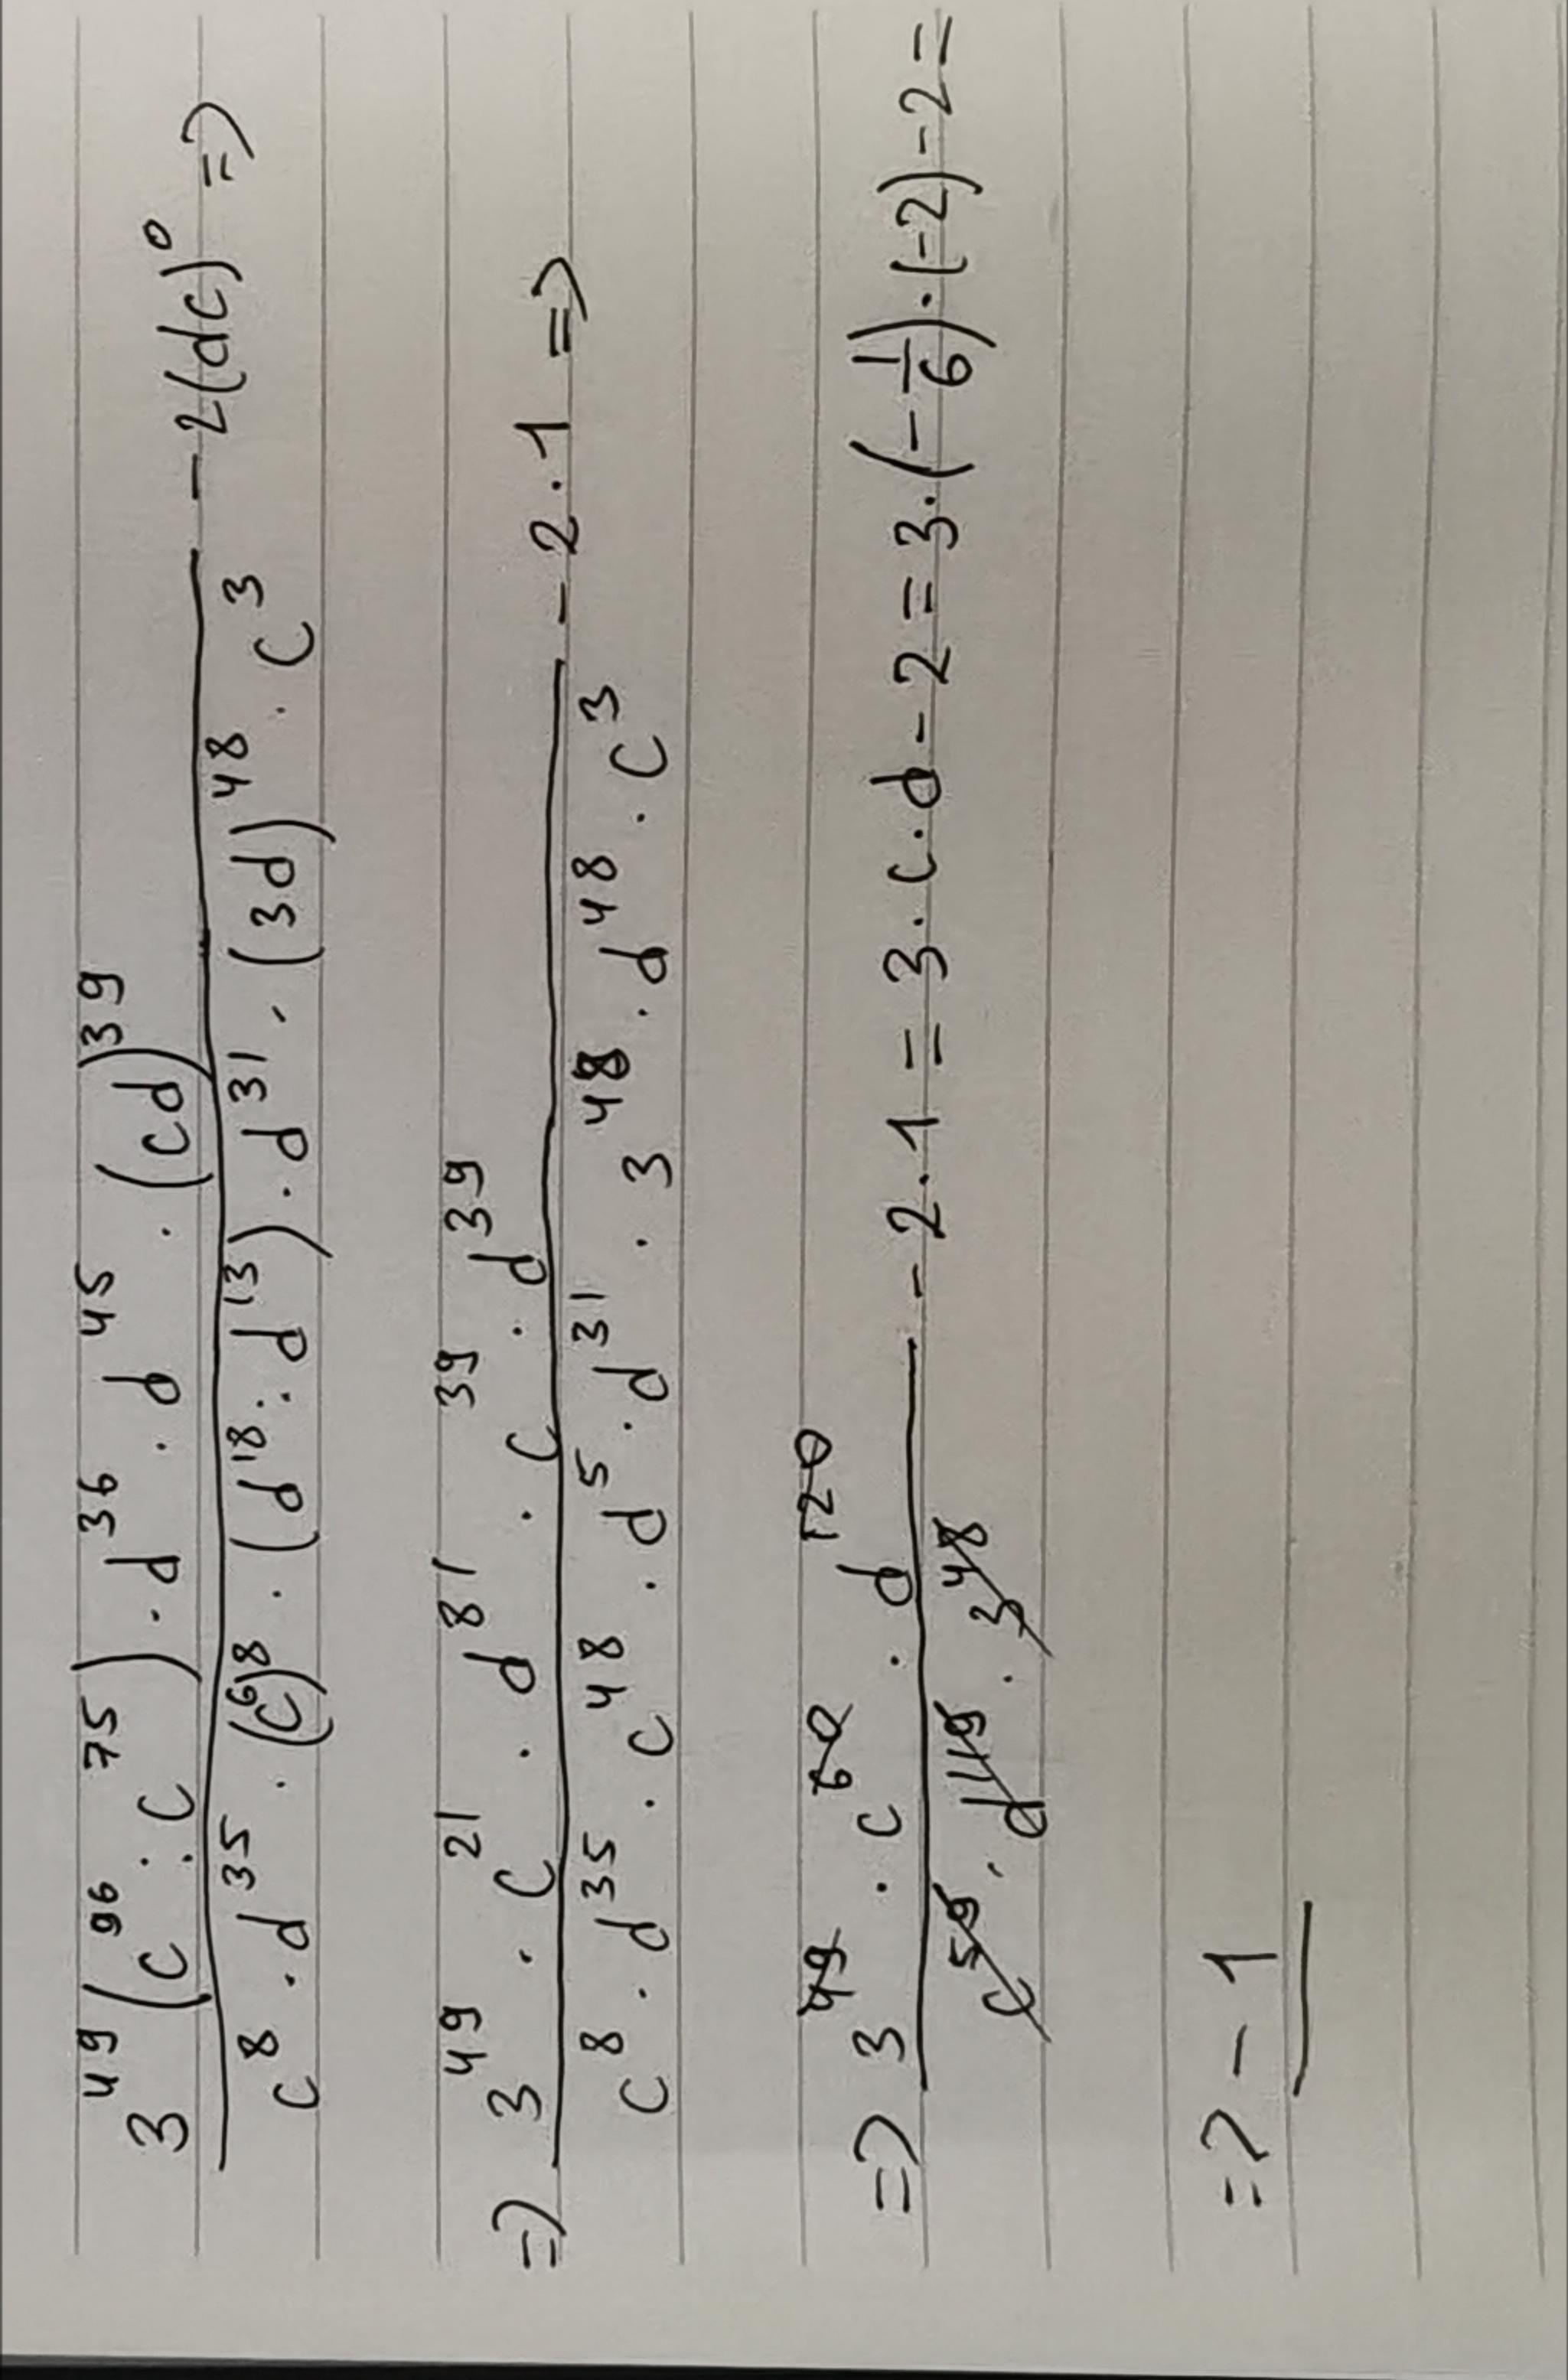 3^49 (c^96 : c^75) · d^36 · d^45 · (cd)^39
c^8 · d^35 · (c^6)^8 · (d^18 : d^13) · d^31 · (3d)^48 · c^3
- 2(dc)^0 =>
=> 3^49 · c^21 · d^81 · c^39 · d^39
c^8 · d^35 · c^48 · d^5 · d^31 · 3^48 · d^48 · c^3
- 2 · 1 =>
=> 3^49 · c^60 · d^120
c^59 · d^119 · 3^48
- 2 · 1 = 3 · c · d - 2 = 3 · (- 1/6) · (-2) - 2 =
=> - 1